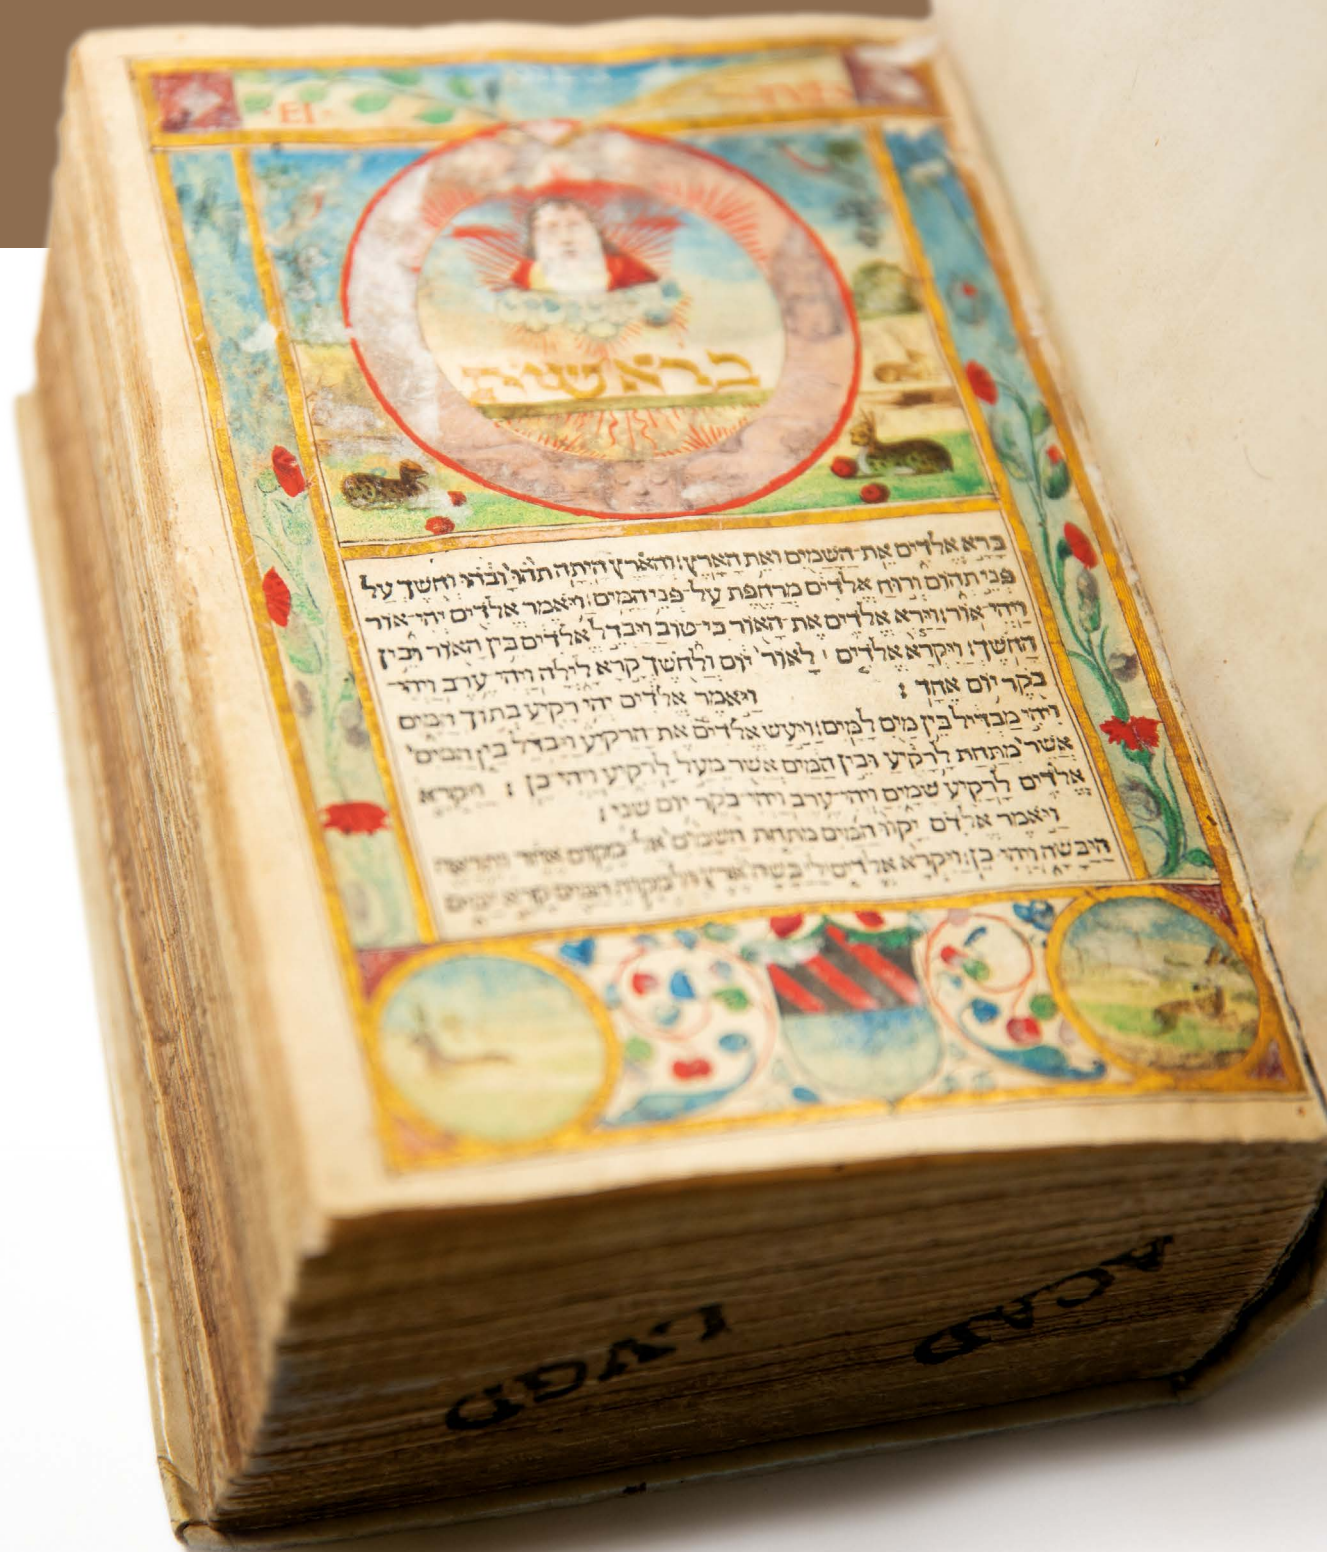 בראשית
ברא אלדים את־השמים ואת הארץ: והארץ היתה תהו ובהו וחשך על
פני תהום ורוח אלדים מרחפת על־פני המים: ויאמר אלדים יהי־אור
ויהי־אור: וירא אלדים את־האור כי־טוב ויבדל אלדים בין האור ובין
החשך: ויקרא אלדים לאור יום ולחשך קרא לילה ויהי־ערב ויהי־
בקר יום אחד: ויאמר אלדים יהי רקיע בתוך המים
ויהי מבדיל בין מים למים: ויעש אלדים את־הרקיע ויבדל בין המים
אשר מתחת לרקיע ובין המים אשר מעל לרקיע ויהי־כן: ויקרא
אלדים לרקיע שמים ויהי־ערב ויהי־בקר יום שני:
ויאמר אלדים יקוו המים מתחת השמים אל־מקום אחד ותראה
היבשה ויהי־כן: ויקרא אלדים ליבשה ארץ ולמקוה המים קרא ימים
ACAD
LVGD